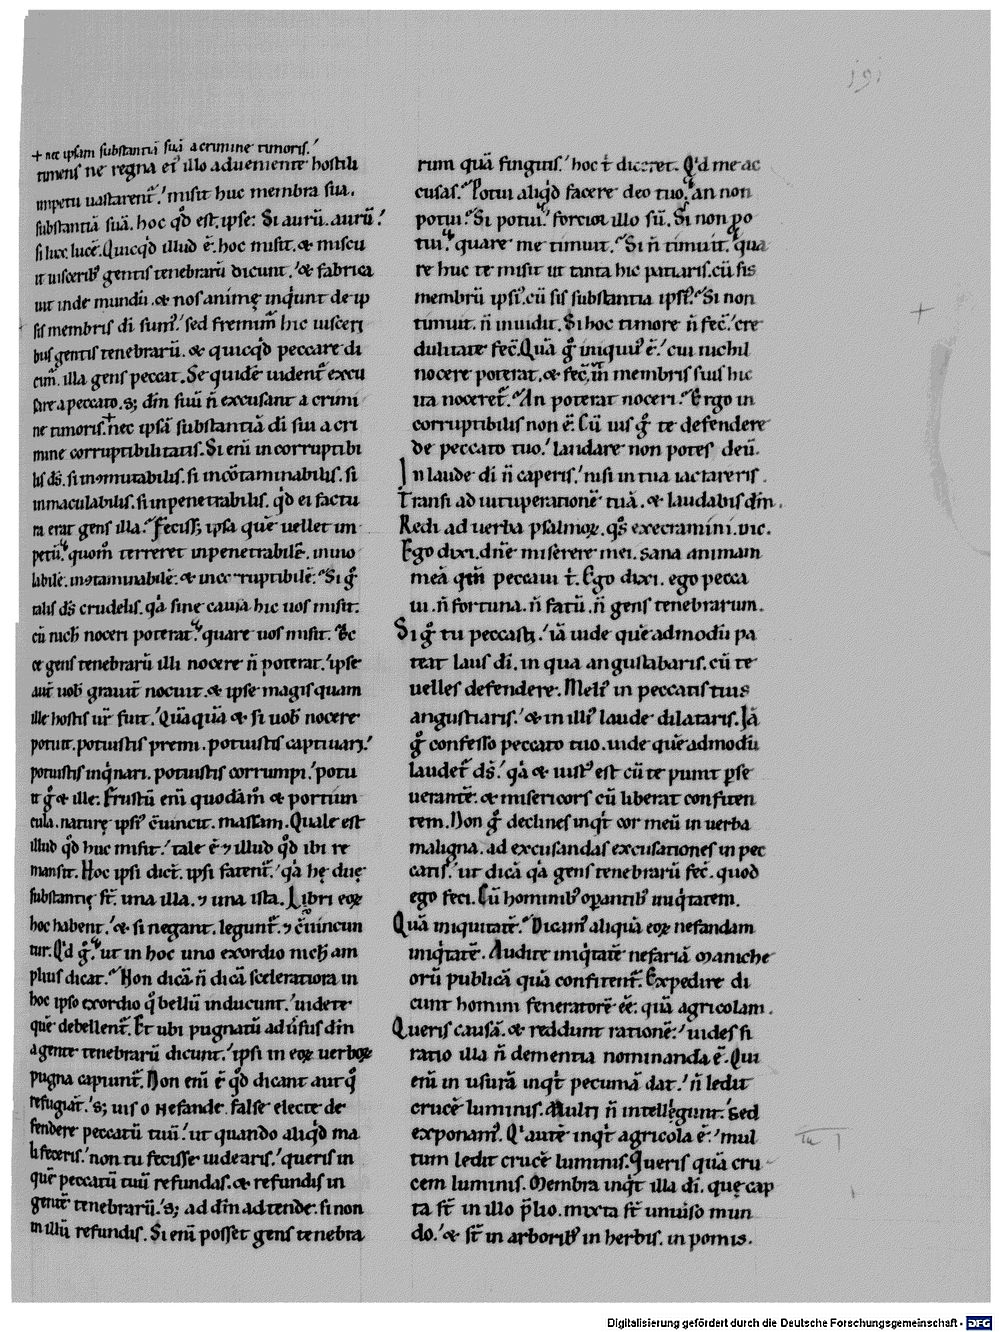 191
+ nec ipsam substantiā suā a crimine timoris.
timens ne regna ei᾽ illo adueniente hostili
impetu uastarent᷑. misit huc membra sua.
substantiā suā. hoc qđ est ipse: Si aurū. aurū.
si luc lucē. Quicqđ illud ē. hoc misit. & miscu
it uiscerib; gentis tenebrarū dicunt. & fabrica
uit inde mundū. & nos animę inq̇unt de ip
sis membris di sum᾽. sed fremim᾽ hic uisceri
bus gentis tenebrarū. & quicqđ peccare di
cim᾽. illa gens peccat. Se quidē uident᷑ excu
sare a peccato. s; dīn suū n̄ excusant a crimi
ne timoris. + nec ipsā substantiā di sui a cri
mine corruptibilitatis. Si enī incorruptibi
lis ds̄. si inōmutabilis. si incōtaminabilis. si
inmaculabilis. si inpenetrabilis. qđ ei factu
ra erat gens illa. Fecisset ipsa quē uellet im
petū. quom̄ terreret inpenetrabilē. inuio
labilē. inōtaminabilē. & incorruptibilē. Si g̊
talis ds̄ crudelis. q̇a sine causa hic uos misit.
cū nich noceri poterat. quare uos misit. Ec
ce gens tenebrarū illi nocere n̄ poterat. ipse
aut̄ uob grauit̄ nocuit. & ipse magis quam
ille hostis ur̄ fuit. Quāquā & si uob nocere
potuit. potuistis premi. potuistis captiuari.
potuistis inq̇nari. potuistis corrumpi. potu
it g̊ & ille. Frustū enī quoddam̄ & portiun
cula. naturę ipsi᾽ cuincit. massam. Quale est
illud qđ huc misit. tale ē ⁊ illud qđ ibi re
mansit. Hoc ipsi dict᷑. ipsi fatent᷑. q̇a hę duę
substantię st̄. una illa. ⁊ una ista. Libri eoꝝ
hoc habent. & si negant. legunt᷑. ⁊ cuincun
tur. Q'd g̊. ut in hoc uno exordio nich am
plius dicat. Non dicā. n̄ dicā sceleratiora in
hoc ipso exordio q̊ bellū inducunt. uidete
quē debellent. Et ubi pugnatū aduersus dīn
a gente tenebrarū dicunt. ipsi in eoꝝ uerboꝝ
pugna capiunt᷑. Non enī ē qđ dicant aut q̊
refugiat. s; uis o nefande. false electe de
fendere peccatū tuū. ut quando aliqđ ma
li feceris. non tu fecisse uidearis. queris in
quē peccatū tuū refundas. & refundis in
gentē tenebrarū. s; ad dīn adtende. si non
in illū refundis. Si enī posset gens tenebra
rum quā fingitis. hoc t̄ diceret. Q'd me ac
cusas. Potui aliqđ facere deo tuo. an non
potui. Si potui. fortior illo sū. Si non po
tui. quare me timuit. Si n̄ timuit. qua
re huc te misit ut tanta hic patiaris. cū sis
membrū ipsi᾽. cū sis substantia ipsi᾽. Si non
timuit. n̄ inuidit. Si hoc timore n̄ fec̄. cre
dulitate fec̄. Quā g̊ iniquu᾽ ē. cui nichil
nocere poterat. & fec̄. ut̄ membris suis hic
ita noceret᷑. An poterat noceri. Ergo in
corruptibilis non ē. Cū uis g̊ te defendere
de peccato tuo. laudare non potes deū.
In laude di n̄ caperis. nisi in tua iactareris.
Transi ad uituperationē tuā. & laudabis dīn.
Redi ad uerba psalmoꝝ. q̊s execramini. dic.
Ego dixi. dn̄e miserere mei. sana animam
meā qm̄ peccaui t̄. Ego dixi. ego pecca
ui. n̄ fortuna. n̄ fatū. n̄ gens tenebrarum.
Si g̊ tu peccasti. iā uide quēadmodū pa
teat laus di. in qua angustabaris. cū te
uelles defendere. Meli᾽ in peccatis tuis
angustiaris. & in illi᾽ laude dilataris. Iā
g̊ confesso peccato tuo. uide quēadmodū
laudet᷑ ds̄. q̇a & iust᾽ est cū te punit pse
uerantē. & misericors cū liberat confiten
tem. Non g̊ declines inq̇t cor meū in uerba
maligna. ad excusandas excusationes in pec
catis. ut dicā q̇a gens tenebrarū fec̄. quod
ego feci. Cū hominib; opantib; iniq̇tatem.
Quā iniquitatē. Dicam᾽ aliquā eoꝝ nefandam
iniq̇tatē. Audite iniq̇tatē nefariā maniche
orū publicā quā confitent᷑. Expedire di
cunt homini feneratorē ee. quā agricolam.
Queris causā. & reddunt rationē. uides si
ratio illa n̄ dementia nominanda ē. Qui
enī in usurā inq̇t pecuniā dat. n̄ ledit
crucē luminis. Multi n̄ intellegunt. Sed
exponam᾽. Q' autē inq̇t agricola ē. mul
tum ledit crucē luminis. Queris quā cru
cem luminis. Membra inq̇t illa di. quę cap
ta st̄ in illo plio. mixta st̄ uniuso mun
do. & st̄ in arborib; in herbis. in pomis.
Digitalisierung gefördert durch die Deutsche Forschungsgemeinschaft - DFG